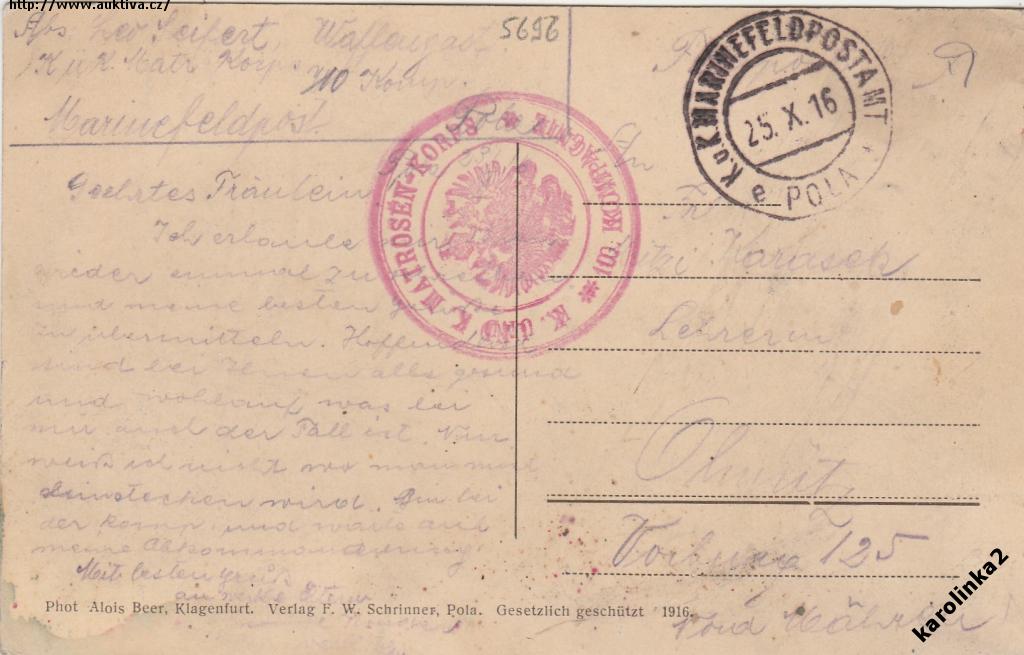 http://www.auktiva.cz/
Abs. Leo Seifert, Waffengast
K u. K. Matr. Korps 10 Komp.
Marinefeldpost.
2595
K.u.K. MARINEFELDPOSTAMT
25. X. 16
e POLA
K. UND K. MATROSEN-KORPS
10) KOMPAGNIE
Geehrtes Fräulein
Ich erlaube mir Ihnen
wieder einmal zu
und meine besten Grüße
zu übermitteln. Hoffendlich
sind bei Ihnen alles gesund
und wohlauf was bei
mir auch der Fall ist. Nur
weiß ich nicht wo man mich
hinstecken wird. Bin bei
der Komp. und warte auf
meine Abkommandierung
Mit besten Gruß
an werte Eltern
An
Karasek
Lehrerin
Olmütz
125
Nord Mähren
Phot Alois Beer, Klagenfurt. Verlag F. W. Schrinner, Pola. Gesetzlich geschützt 1916.
karolinka2